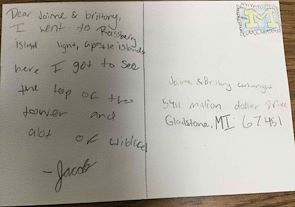 Dear Jaime & brittany,
I went to
Island light, Apostle islands
here I got to see
the top of the
tower and
alot of
-Jacob
M
Jaime & Brittany
5411 million dollar drive
Gladstone, MI 67451